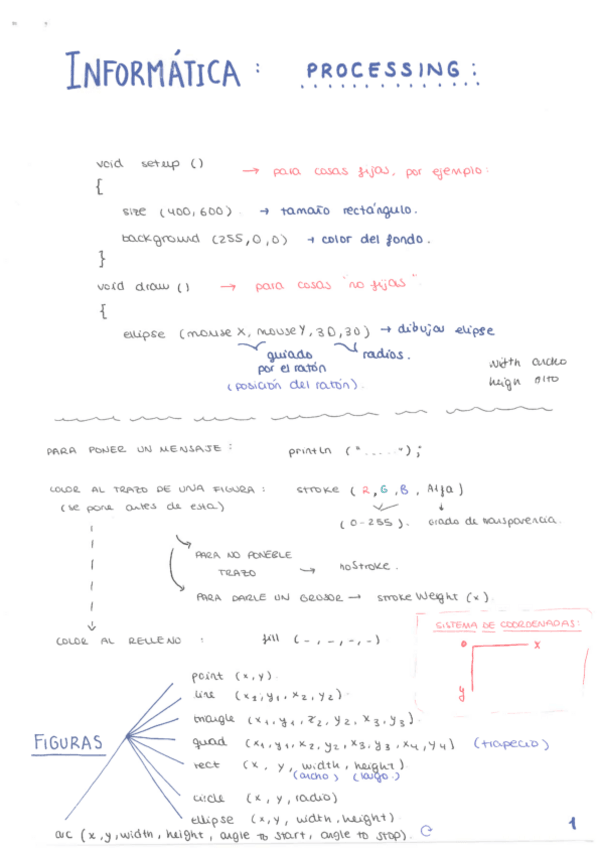 INFORMÁTICA : PROCESSING :
void setup ()
→ para cosas fijas, por ejemplo:
{
size (400,600). → tamaño rectángulo.
background (255,0,0) → color del fondo.
}
void draw () → para cosas "no fijas".
{
ellipse (mouse X, mouse Y, 30, 30) → dibujar elipse
guiado por el ratón radios.
(posición del ratón).
width ancho
heigh alto
PARA PONER UN MENSAJE : println (".....");
COLOR AL TRAZO DE UNA FIGURA : stroke (R,G,B, Alfa)
(se pone antes de esta)
(0-255). Grado de transparencia.
PARA NO PONERLE TRAZO → noStroke.
PARA DARLE UN GROSOR → stroke Weight (x).
COLOR AL RELLENO : fill (-,-,-,-)
SISTEMA DE COORDENADAS:
o x
y
FIGURAS
point (x,y).
line (x1,y1,x2,y2).
triangle (x1,y1,z2,y2,x3,y3).
quad (x1,y1,x2,y2,x3,y3,x4,y4) (trapecio)
rect (x, y, width, height).
(ancho) (largo.)
circle (x, y, radio)
ellipse (x,y, width, height).
arc (x,y,width, height, angle to start, angle to stop).
1